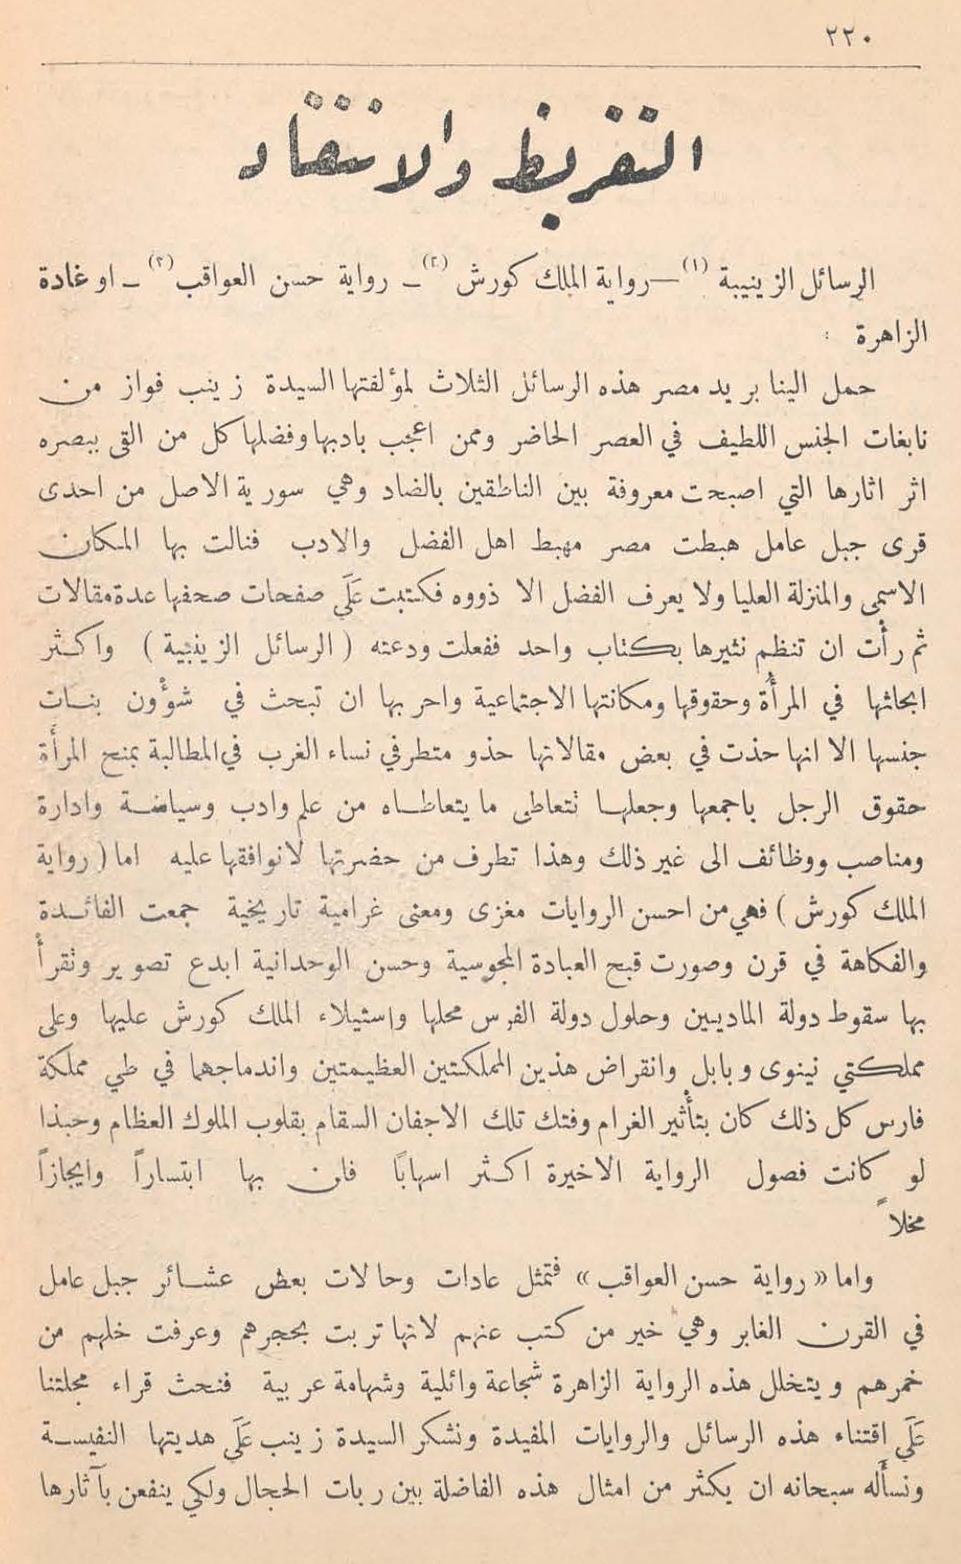 ٢٢٠
التقريظ والانتقاد
الرسائل الزينبية (١) — رواية الملك كورش (٢) – رواية حسن العواقب (٣) – او غادة
الزاهرة :
حمل الينا بريد مصر هذه الرسائل الثلاث لمؤلفتها السيدة زينب فواز من
نابغات الجنس اللطيف في العصر الحاضر وممن اعجب بادبها وفضلها كل من التقى ببصره
اثر اثارها التي اصبحت معروفة بين الناطقين بالضاد وهي سورية الاصل من احدى
قرى جبل عامل هبطت مصر مهبط اهل الفضل والادب فنالت بها المكان
الاسمى والمنزلة العليا ولا يعرف الفضل الا ذووه فكتبت عَلَى صفحات صحفها عدة مقالات
ثم رأت ان تنظم نثيرها بكتاب واحد ففعلت ودعته ( الرسائل الزينبية ) واكثر
ابحاثها في المرأة وحقوقها ومكانتها الاجتماعية واحر بها ان تبحث في شؤون بنات
جنسها الا انها حذت في بعض مقالاتها حذو متطرفي نساء الغرب في المطالبة بمنح المرأة
حقوق الرجل باجمعها وجعلها تتعاطى ما يتعاطاه من علم وادب وسياسة وادارة
ومناصب ووظائف الى غير ذلك وهذا تطرف من حضرتها لانوافقها عليه اما ( رواية
الملك كورش ) فهي من احسن الروايات مغزى ومعنى غرامية تاريخية جمعت الفائدة
والفكاهة في قرن وصورت قبح العبادة المجوسية وحسن الوحدانية ابدع تصوير وتقرأ
بها سقوط دولة الماديين وحلول دولة الفرس محلها واستيلاء الملك كورش عليها وعلى
مملكتي نينوى وبابل وانقراض هذين المملكتين العظيمتين واندماجهما في طي مملكة
فارس كل ذلك كان بتأثير الغرام وفتك تلك الاجفان السقام بقلوب الملوك العظام وحبذا
لو كانت فصول الرواية الاخيرة اكثر اسهاباً فان بها ابتساراً وايجازاً
مخلاً
واما « رواية حسن العواقب » فتمثل عادات وحالات بعض عشائر جبل عامل
في القرن الغابر وهي خير من كتب عنهم لانها تربت بحجرهم وعرفت خلهم من
خمرهم ويتخلل هذه الرواية الزاهرة شجاعة وائلية وشهامة عربية فنحث قراء مجلتنا
عَلَى اقتناء هذه الرسائل والروايات المفيدة ونشكر السيدة زينب عَلَى هديتها النفيسة
ونسأله سبحانه ان يكثر من امثال هذه الفاضلة بين ربات الحجال ولكي ينفعن بآثارها